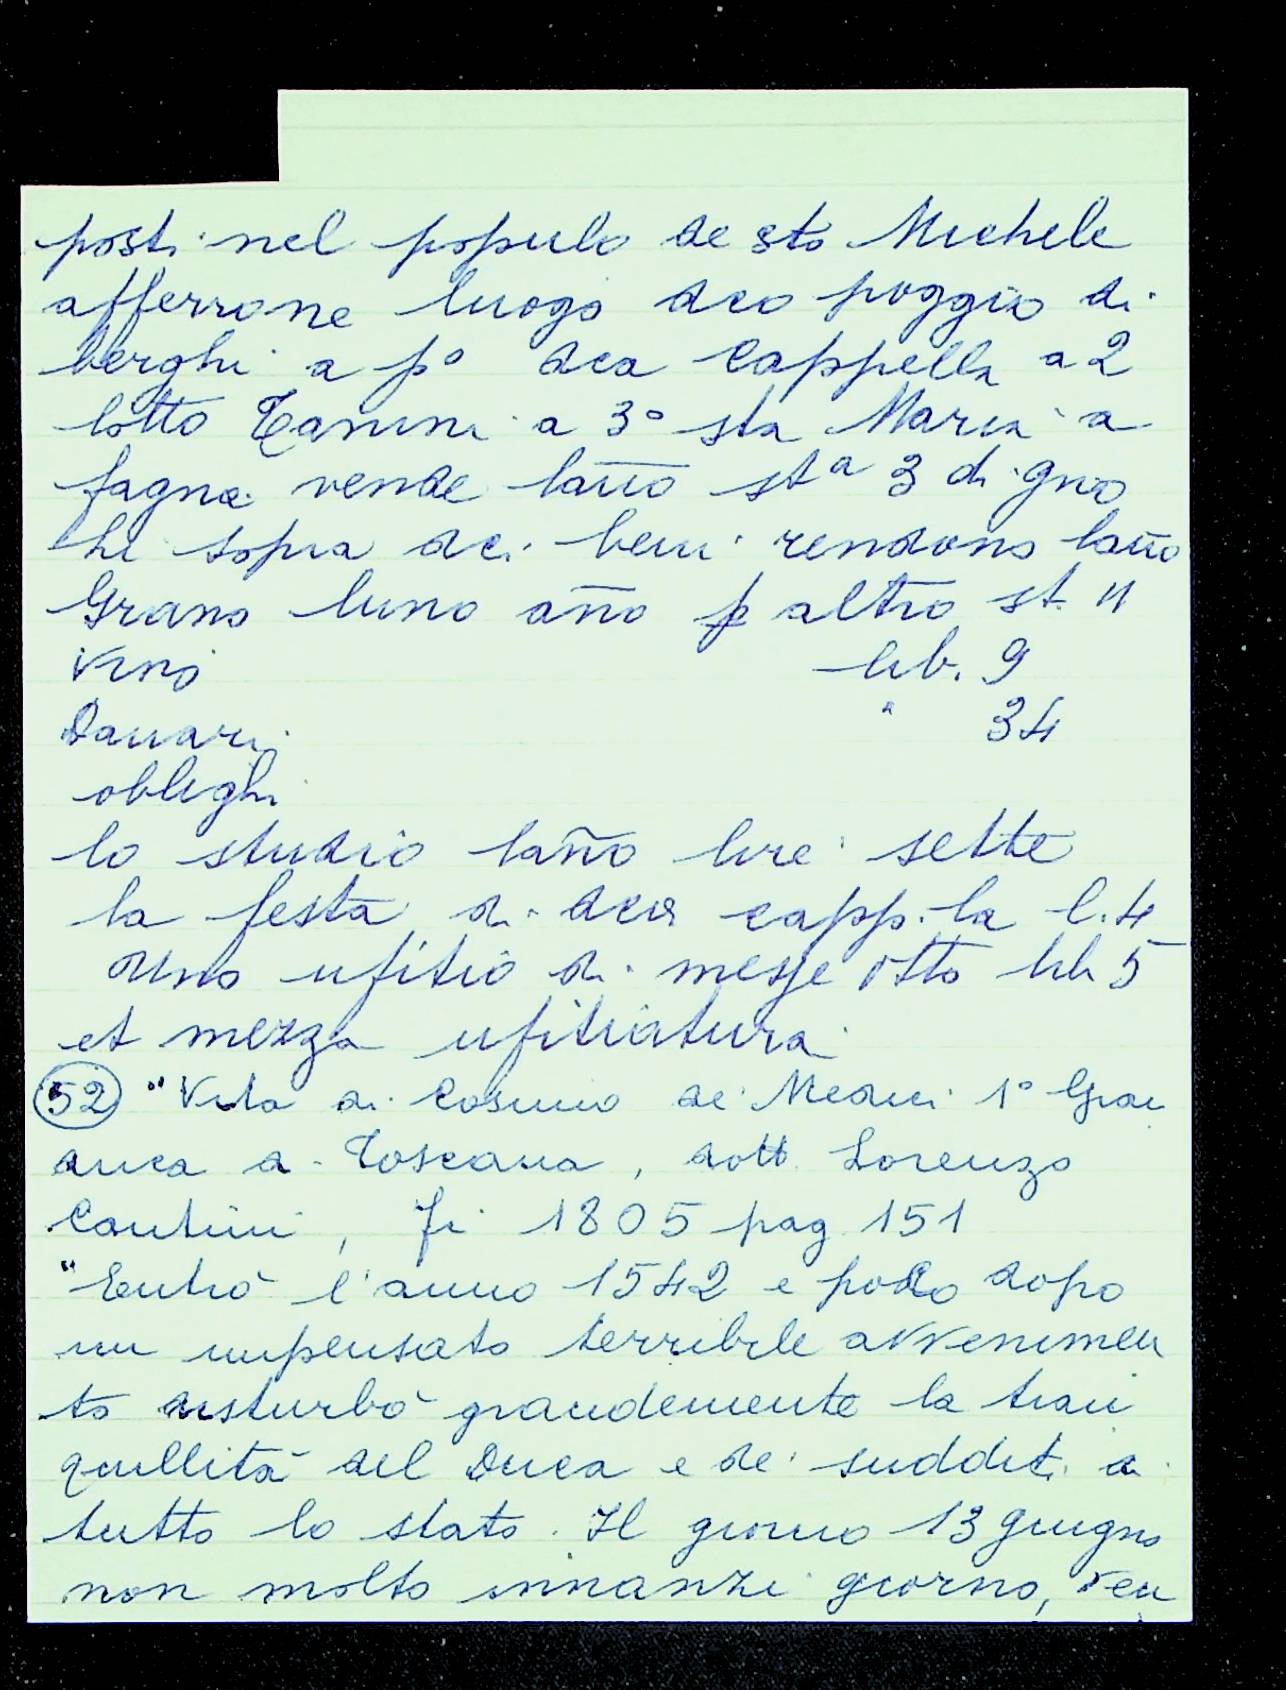 posti nel populo de sto Michele
afferrone luogo dco poggio di
berghi a p° dca Cappella a 2
lotto Tanini a 3° sta Maria a
fagna vende lanño stª 3 di gno
li sopra dci beni rendono lanño
Grano luno año p altro st. 11
Vino lib. 9
Danari " 34
oblighi
lo studio laño lire sette
la festa di dcа capp.la l. 4
Uno ufitio di messe otto lib 5
et mezza ufitiatura
52 "Vita di Cosimo de Medici 1° Gran
duca di Toscana, dott. Lorenzo
Cantini, Fi 1805 pag 151
"Entrò l'anno 1542 e poco dopo
un impensato terribile avvenimen
to disturbò grandemente la tran
quillità del Duca e de' sudditi di
tutto lo stato. Il giorno 13 giugno
non molto innanzi giorno, ven